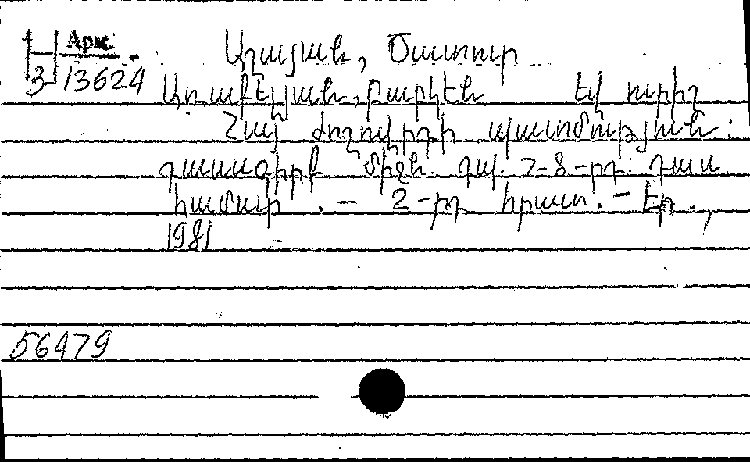 Арм.
3-13624
Աղայան, Ծատուր
Առաքելյան, Բաբկեն եվ ուրիշ
Հայ ժողովրդի պատմություն:
դասագիրք միջն դպ. 7-8-րդ դաս
համար. – 2-րդ հրատ. – Եր.,
1981
56479